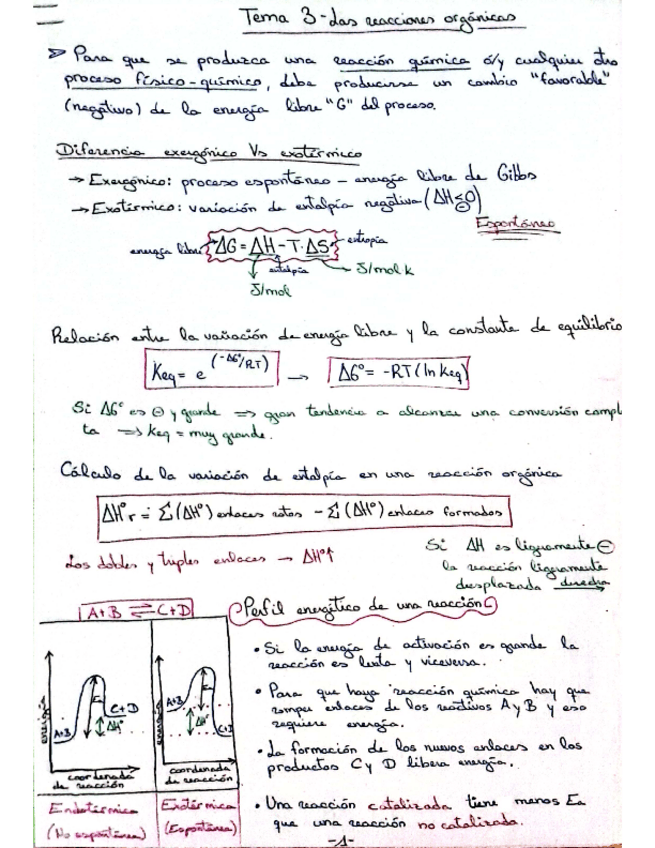 Tema 3 - Las reacciones orgánicas
➢ Para que se produzca una reacción química ó/y cualquier otro
proceso físico-químico, debe producirse un cambio "favorable"
(negativo) de la energía libre "G" del proceso.
Diferencia exergónico Vs exotérmico
→ Exergónico: proceso espontáneo - energía libre de Gibbs
→ Exotérmico: variación de entalpía negativa (ΔH≤0)
Espontáneo
energía libre ΔG = ΔH - T·ΔS entropía
entalpía J/mol·k
J/mol
Relación entre la variación de energía libre y la constante de equilibrio
Keq = e^(-ΔG°/RT) → ΔG° = -RT(ln Keq)
Si ΔG° es ⊖ y grande ⇒ gran tendencia a alcanzar una conversión compl
ta ⇒ Keq = muy grande.
Cálculo de la variación de entalpía en una reacción orgánica
ΔH°r = Σ(ΔH°) enlaces rotos - Σ(ΔH°) enlaces formados
Los dobles y triples enlaces → ΔH°↑
Si ΔH es ligeramente ⊖
la reacción ligeramente
desplazada derecha
A+B ⇌ C+D
Perfil energético de una reacción
• Si la energía de activación es grande la
reacción es lenta y viceversa.
• Para que haya reacción química hay que
romper enlaces de los reactivos A y B y eso
requiere energía.
• La formación de los nuevos enlaces en los
productos C y D libera energía.
• Una reacción catalizada tiene menos Ea
que una reacción no catalizada.
energía
A+B
C+D
ΔH°
coordenada
de reacción
Endotérmica
(No espontánea)
energía
A+B
C+D
ΔH°
coordenada
de reacción
Exotérmica
(Espontánea)
-1-